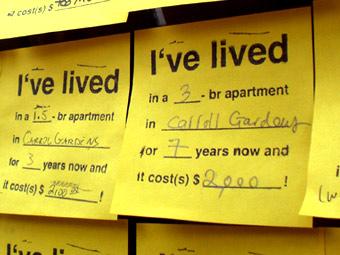 it cost(s) $
I've lived
in a 1.5 - br apartment
in CARROL GARDENS
for 3 years now and
it cost(s) $ 2100 !
I've lived
in a 3 - br apartment
in Carroll Gardens
for 7 years now and
it cost(s) $ 2,000 !
I've lived
I've lived